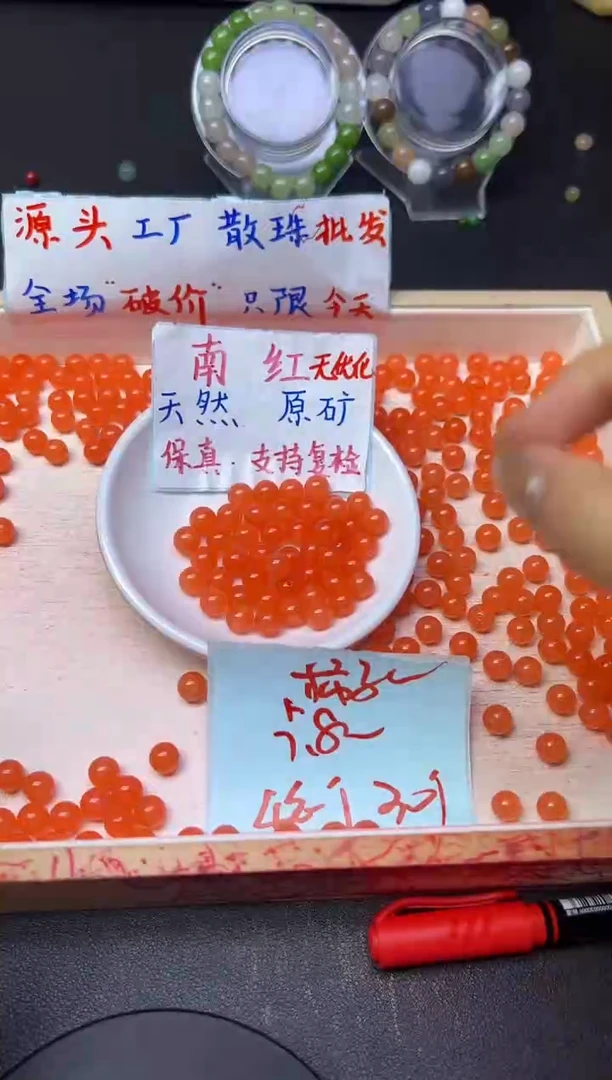 源头工厂 散珠批发
全场"破价"只限今天
南 红 无优化
天然 原矿
保真·支持复检